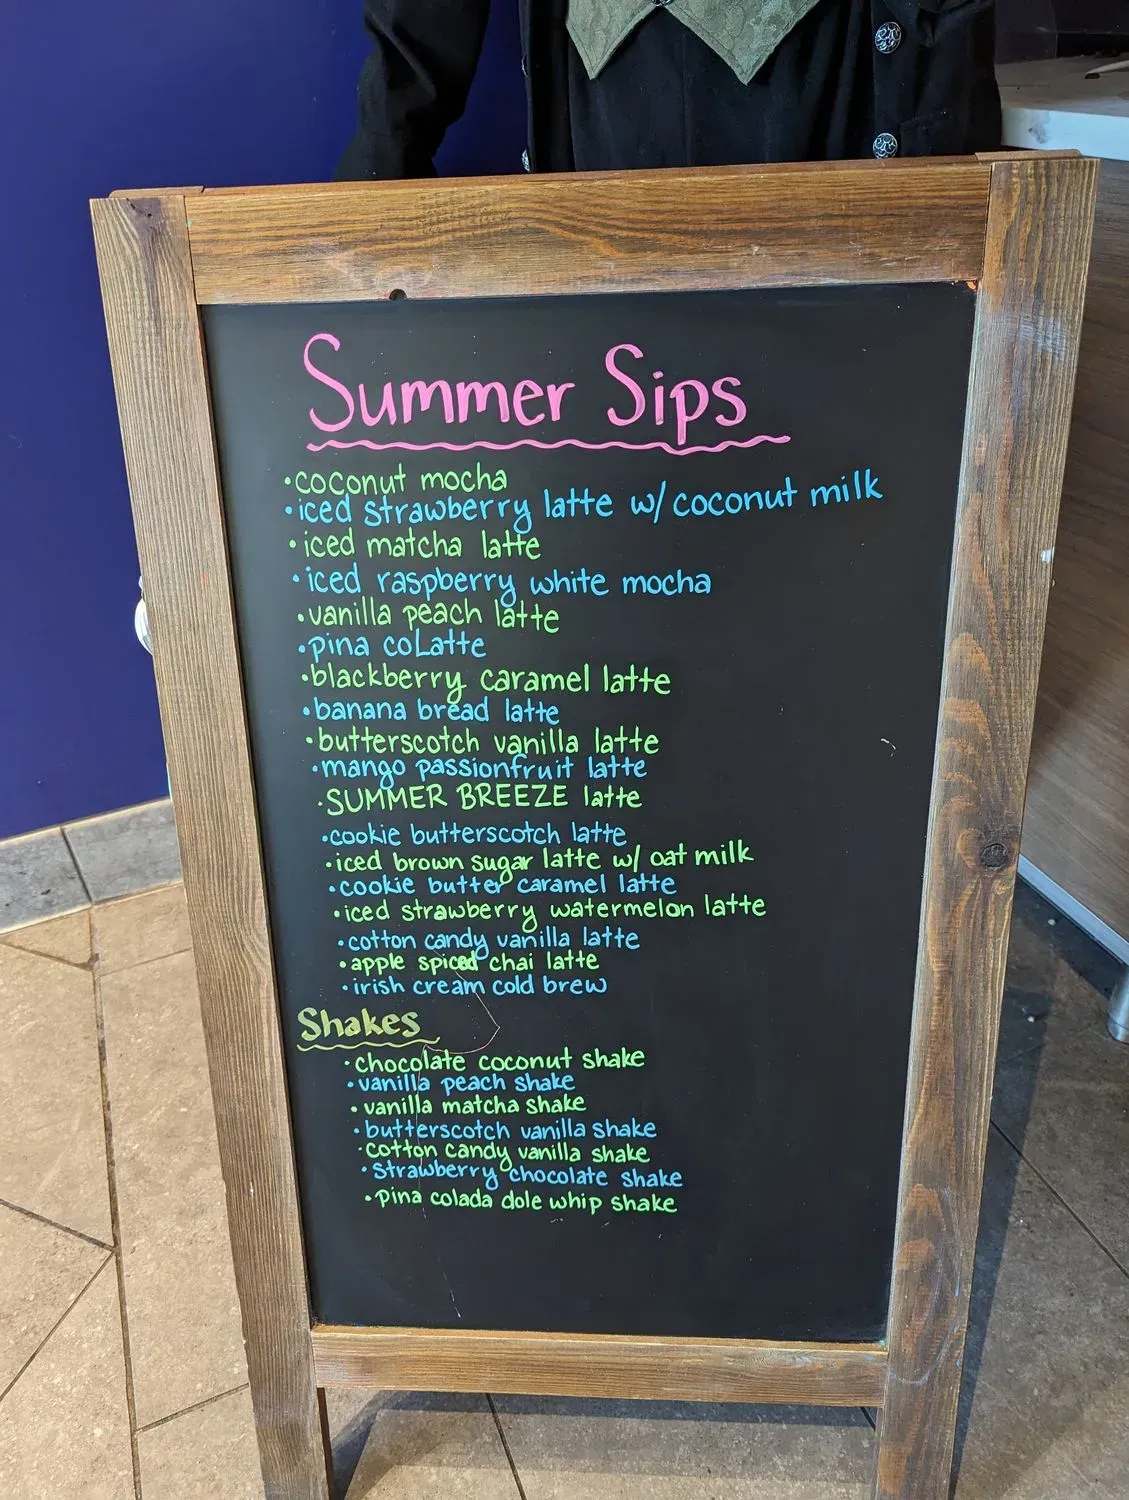 Summer Sips
•coconut mocha
•iced strawberry latte w/ coconut milk
•iced matcha latte
•iced raspberry white mocha
•vanilla peach latte
•pina coLatte
•blackberry caramel latte
•banana bread latte
•butterscotch vanilla latte
•mango passionfruit latte
•SUMMER BREEZE latte
•cookie butterscotch latte
•iced brown sugar latte w/ oat milk
•cookie butter caramel latte
•iced strawberry watermelon latte
•cotton candy vanilla latte
•apple spiced chai latte
•irish cream cold brew
Shakes
•chocolate coconut shake
•vanilla peach shake
•vanilla matcha shake
•butterscotch vanilla shake
•cotton candy vanilla shake
•strawberry chocolate shake
•pina colada dole whip shake